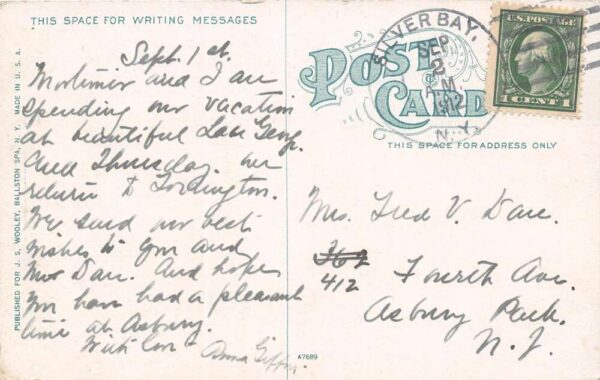 THIS SPACE FOR WRITING MESSAGES
Sept. 1st.
Mortimer and I are
spending our vacation
at beautiful Lake George.
until Thursday. We
return to Torrington.
We send our best
wishes to you and
Mr Dare. And hope
you have had a pleasant
time at Asbury.
With love
Anna
PUBLISHED FOR J. S. WOOLEY, BALLSTON SPA, N. Y. MADE IN U. S. A.
POST CARD
SILVER BAY,
SEP
2
AM
1912
N.Y.
U.S. POSTAGE
1 CENT 1
THIS SPACE FOR ADDRESS ONLY
Mrs. Fred V. Dare.
367
412 Fourth Ave.
Asbury Park.
N. J.
A7689